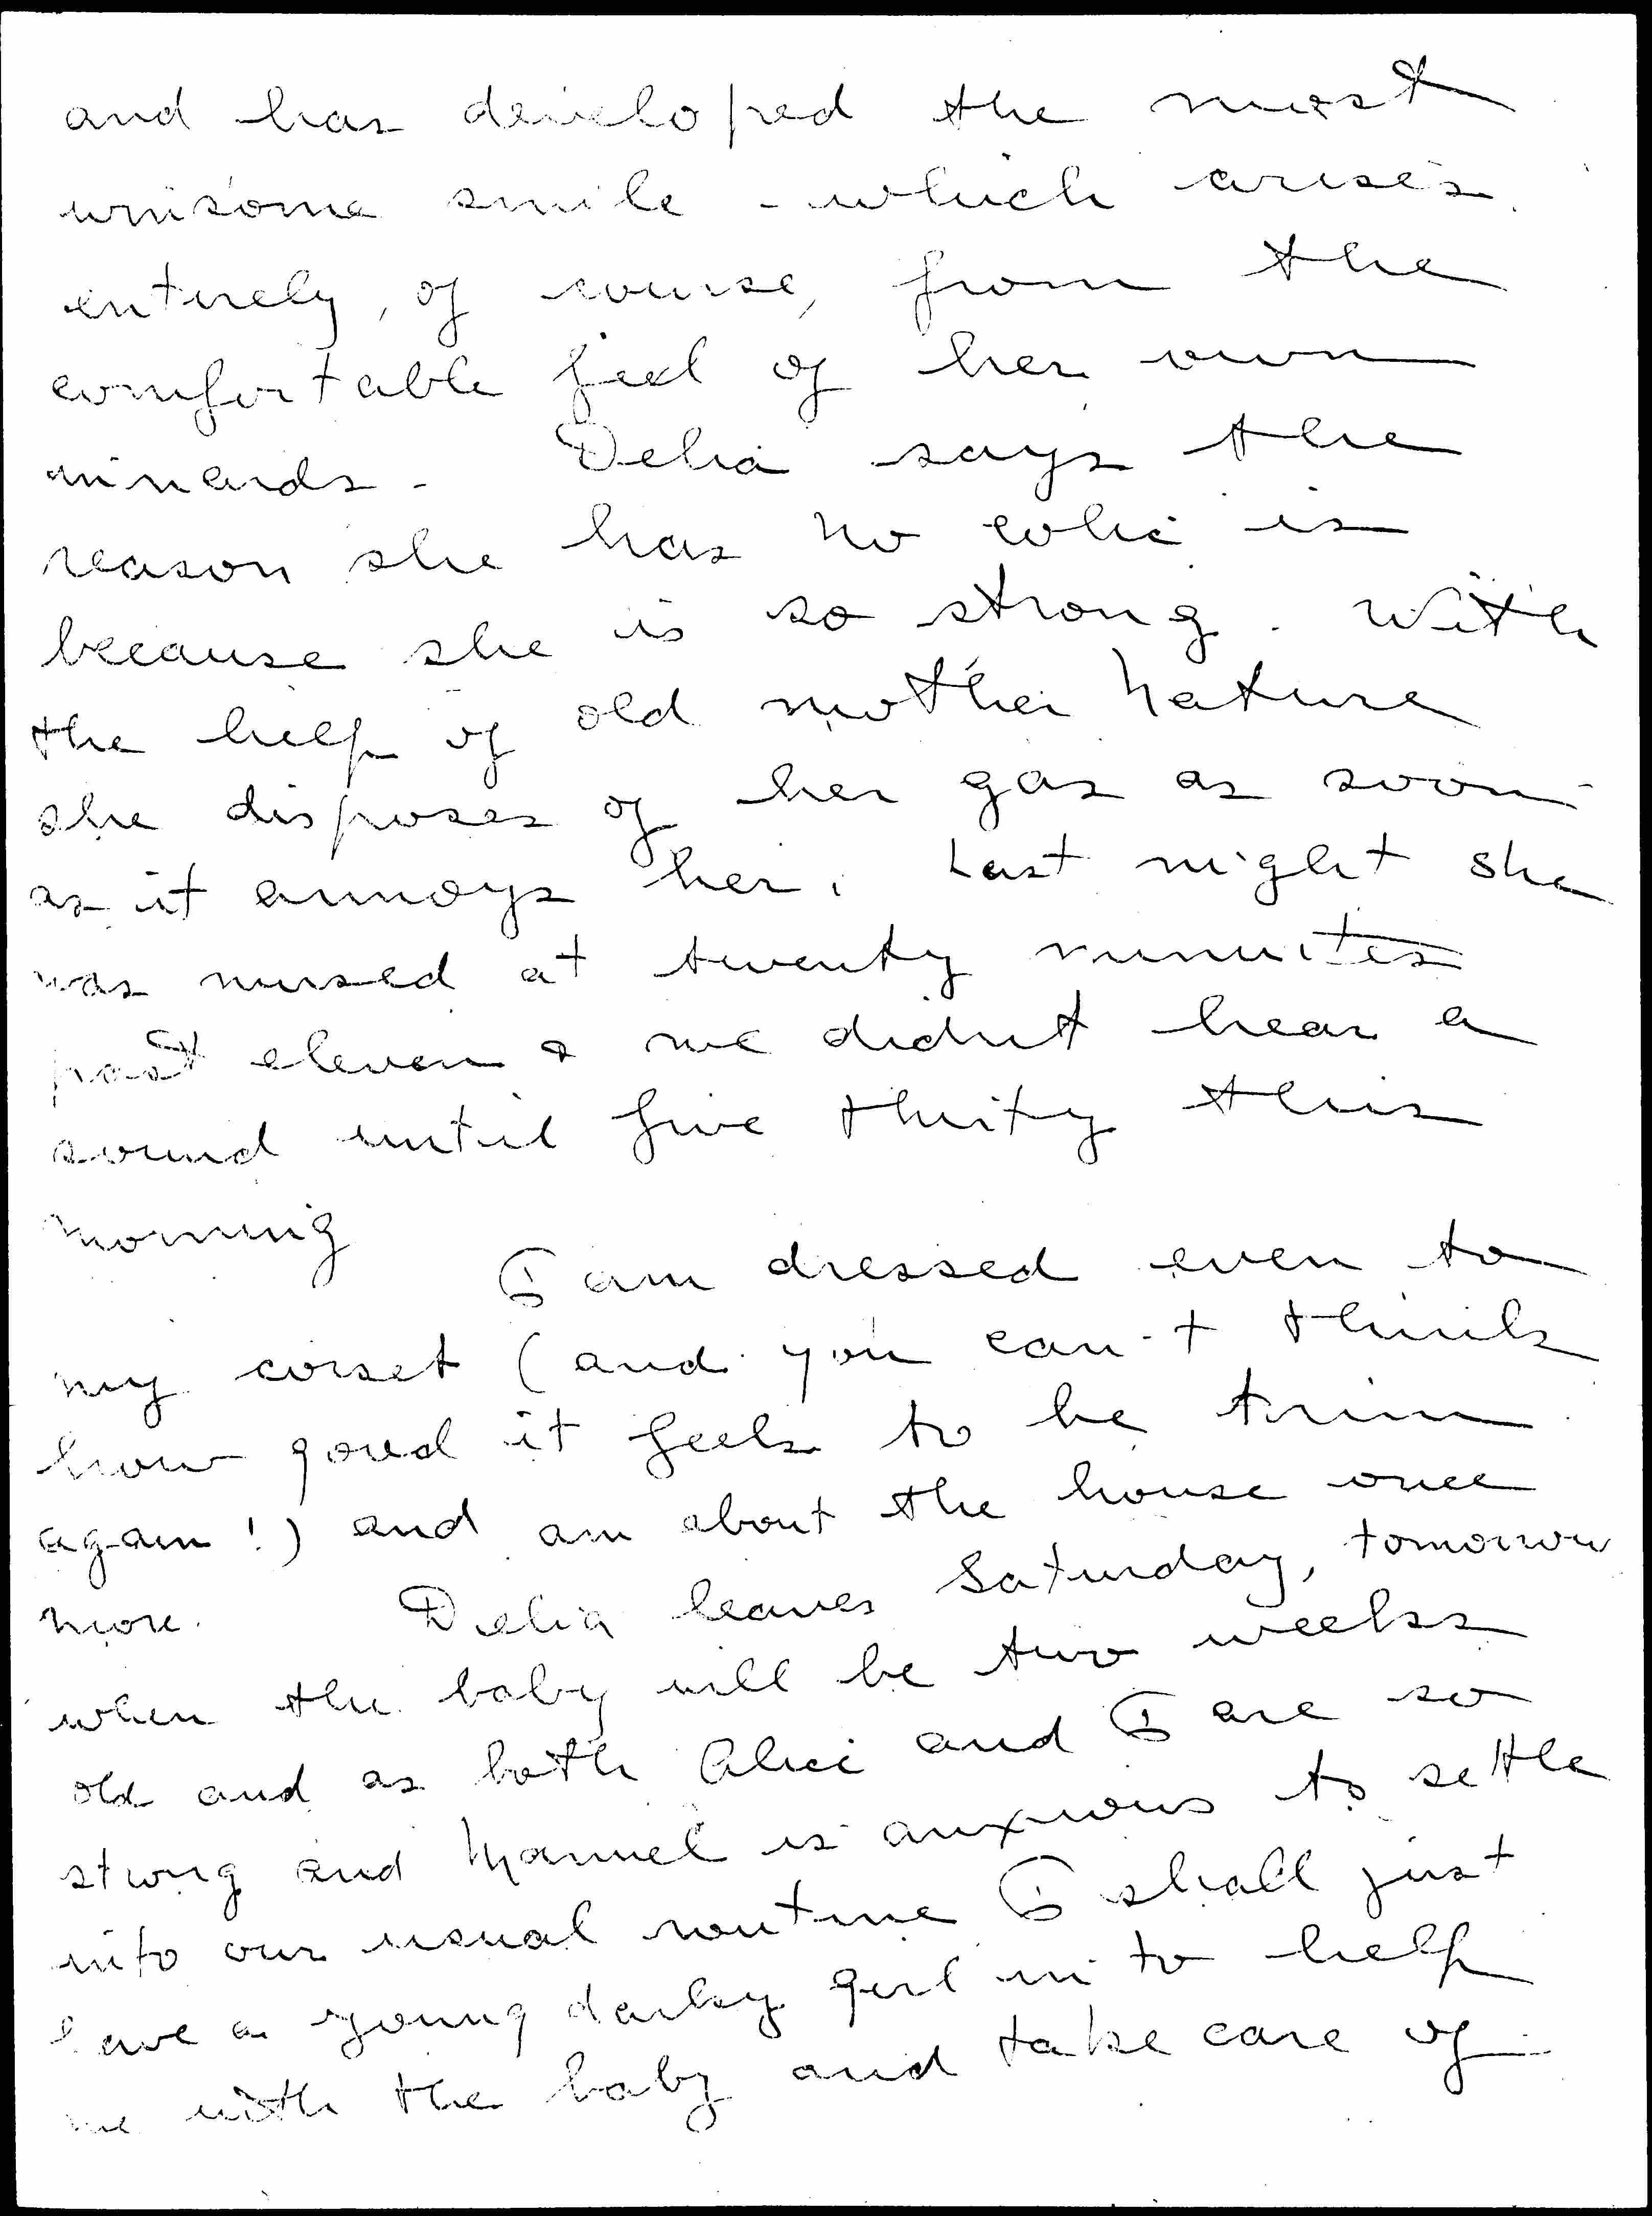 and has developed the most
winsome smile - which arises
entirely, of course, from the
comfortable feel of her own
innards - Delia says the
reason she has no colic is
because she is so strong. With
the help of old mother Nature
she disposes of her gas as soon
as it annoys her. Last night she
was nursed at twenty minutes
past eleven & we didn't hear a
sound until five thirty this
morning
I am dressed even to
my corset (and you can't think
how good it feels to be trim
again!) and am about the house once
more. Delia leaves Saturday, tomorrow
when the baby will be two weeks
old and as both Alice and I are so
strong and Manuel is anxious to settle
into our usual routine I shall just
have a young darky girl in to help
me with the baby and take care of